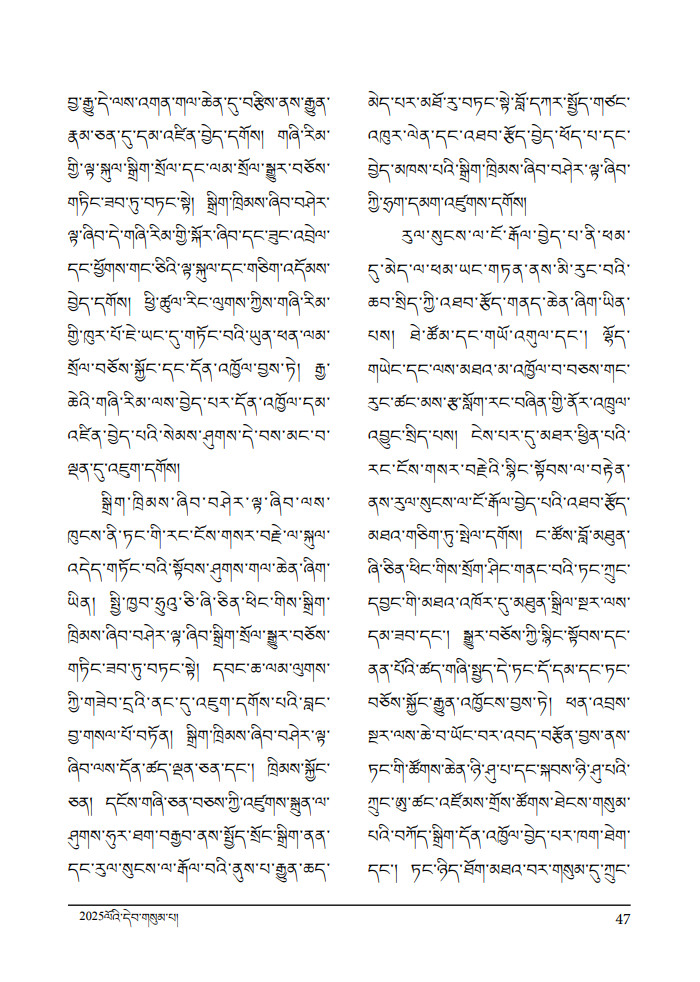 བྱ་རྒྱུ་དེ་ལས་འགན་གལ་ཆེན་དུ་བརྩིས་ནས་རྒྱུན་
རྣམ་ཅན་དུ་དམ་འཛིན་བྱེད་དགོས། གཞི་རིམ་
གྱི་ལྟ་སྐུལ་སྒྲིག་སྲོལ་དང་ལམ་སྲོལ་སྒྱུར་བཅོས་
གཏིང་ཟབ་ཏུ་བཏང་སྟེ། སྒྲིག་ཁྲིམས་ཞིབ་བཤེར་
ལྟ་ཞིབ་དེ་གཞི་རིམ་གྱི་སྐོར་ཞིབ་དང་ཟུང་འབྲེལ་
དང་ཕྱོགས་གང་ཅིའི་ལྟ་སྐུལ་དང་གཅིག་འདོམས་
བྱེད་དགོས། ཕྱི་ཚུལ་རིང་ལུགས་ཀྱིས་གཞི་རིམ་
གྱི་ཁུར་པོ་ཇེ་ཡང་དུ་གཏོང་བའི་ཡུན་ཕན་ལམ་
སྲོལ་བཅོས་སྐྱོང་དང་དོན་འཁྱོལ་བྱས་ཏེ། རྒྱ་
ཆེའི་གཞི་རིམ་ལས་བྱེད་པར་དོན་འཁྱོལ་དམ་
འཛིན་བྱེད་པའི་སེམས་ཤུགས་དེ་བས་མང་བ་
ལྡན་དུ་འཇུག་དགོས།
སྒྲིག་ཁྲིམས་ཞིབ་བཤེར་ལྟ་ཞིབ་ལས་
ཁུངས་ནི་ཏང་གི་རང་ངོས་གསར་བརྗེ་ལ་སྐུལ་
འདེད་གཏོང་བའི་སྟོབས་ཤུགས་གལ་ཆེན་ཞིག་
ཡིན། སྤྱི་ཁྱབ་ཧྲུའུ་ཅི་ཞི་ཅིན་ཕིང་གིས་སྒྲིག་
ཁྲིམས་ཞིབ་བཤེར་ལྟ་ཞིབ་སྒྲིག་སྲོལ་སྒྱུར་བཅོས་
གཏིང་ཟབ་ཏུ་བཏང་སྟེ། དབང་ཆ་ལམ་ལུགས་
ཀྱི་གཟེབ་དྲའི་ནང་དུ་འཇུག་དགོས་པའི་བླང་
བྱ་གསལ་པོ་བཏོན། སྒྲིག་ཁྲིམས་ཞིབ་བཤེར་ལྟ་
ཞིབ་ལས་དོན་ཚད་ལྡན་ཅན་དང་། ཁྲིམས་སྐྱོང་
ཅན། དངོས་གཞི་ཅན་བཅས་ཀྱི་འཛུགས་སྐྲུན་ལ་
ཤུགས་ཧུར་ཐག་བརྒྱབ་ནས་སྤྱོད་སྲོང་སྒྲིག་ནན་
དང་རུལ་སུངས་ལ་རྒོལ་བའི་ནུས་པ་རྒྱུན་ཆད་
མེད་པར་མཐོ་རུ་བཏང་སྟེ་བློ་དཀར་སྤྱོད་གཙང་
འཁུར་ལེན་དང་འཐབ་རྩོད་བྱེད་ཕོད་པ་དང་
བྱེད་མཁས་པའི་སྒྲིག་ཁྲིམས་ཞིབ་བཤེར་ལྟ་ཞིབ་
ཀྱི་ཧྲག་དམག་འཛུགས་དགོས།
རུལ་སུངས་ལ་ངོ་རྒོལ་བྱེད་པ་ནི་ཕམ་
དུ་མེད་ལ་ཕམ་ཡང་གཏན་ནས་མི་རུང་བའི་
ཆབ་སྲིད་ཀྱི་འཐབ་རྩོད་གནད་ཆེན་ཞིག་ཡིན་
པས། ཐེ་ཚོམ་དང་གཡོ་འགུལ་དང་། ལྷོད་
གཡེང་དང་ལས་མཐའ་མ་འཁྱོལ་བ་བཅས་གང་
རུང་ཚང་མས་རྩ་སློག་རང་བཞིན་གྱི་ནོར་འཁྲུལ་
འབྱུང་སྲིད་པས། ངེས་པར་དུ་མཐར་ཕྱིན་པའི་
རང་ངོས་གསར་བརྗེའི་སྙིང་སྟོབས་ལ་བརྟེན་
ནས་རུལ་སུངས་ལ་ངོ་རྒོལ་བྱེད་པའི་འཐབ་རྩོད་
མཐའ་གཅིག་ཏུ་སྤེལ་དགོས། ང་ཚོས་བློ་མཐུན་
ཞི་ཅིན་ཕིང་གིས་སྲོག་ཤིང་གནང་བའི་ཏང་ཀྲུང་
དབྱང་གི་མཐའ་འཁོར་དུ་མཐུན་སྒྲིལ་སྔར་ལས་
དམ་ཟབ་དང་། སྒྱུར་བཅོས་ཀྱི་སྙིང་སྟོབས་དང་
ནན་པོའི་ཚད་གཞི་སྤྱད་དེ་ཏང་དོ་དམ་དང་ཏང་
བཅོས་སྐྱོང་རྒྱུན་འཁྱོངས་བྱས་ཏེ། ཕན་འབྲས་
སྔར་ལས་ཆེ་བ་ཡོང་བར་འབད་བརྩོན་བྱས་ནས་
ཏང་གི་ཚོགས་ཆེན་ཉི་ཤུ་པ་དང་སྐབས་ཉི་ཤུ་པའི་
ཀྲུང་ཨུ་ཚང་འཛོམས་གྲོས་ཚོགས་ཐེངས་གསུམ་
པའི་བཀོད་སྒྲིག་དོན་འཁྱོལ་བྱེད་པར་ཁག་ཐེག་
དང་། ཏང་ཉིད་ཐོག་མཐའ་བར་གསུམ་དུ་ཀྲུང་
2025ལོའི་དེབ་གསུམ་པ།
47